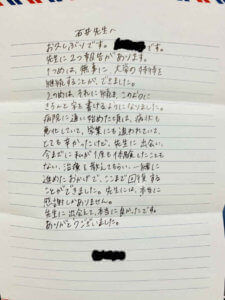 石井先生へ
お久しぶりです。です。
先生に2つ報告があります。
1つめは、無事に大学の特待を
継続することができました。
2つめは、それに加え、このように
きちんと字を書けるようになりました。
病院に通い始めた頃は、症状も
悪化していて、学業にも追われていて、
とても辛かったけど、先生に出会い、
今までに私が1度も体験したことも
ない、治療を教えてもらい、一緒に
進めたおかげで、ここまで回復する
ことができました。先生には、本当に
感謝しかありません。
先生に出会えて、本当に良かったです。
ありがとうございました。